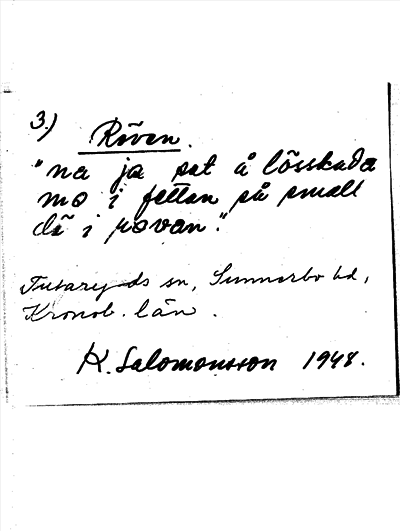 3.)
Röven.
"na ja sat å lösskada
mo i fettan så small
dä i rovan."
Tutaryds sn, Sunnerbo hd,
Kronob. län.
K. Salomonsson 1948.